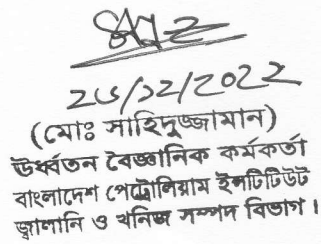 ২৬/১২/২০২২
(মোঃ সাহিদুজ্জামান)
ঊর্ধ্বতন বৈজ্ঞানিক কর্মকর্তা
বাংলাদেশ পেট্রোলিয়াম ইন্সটিটিউট
জ্বালানি ও খনিজ সম্পদ বিভাগ।